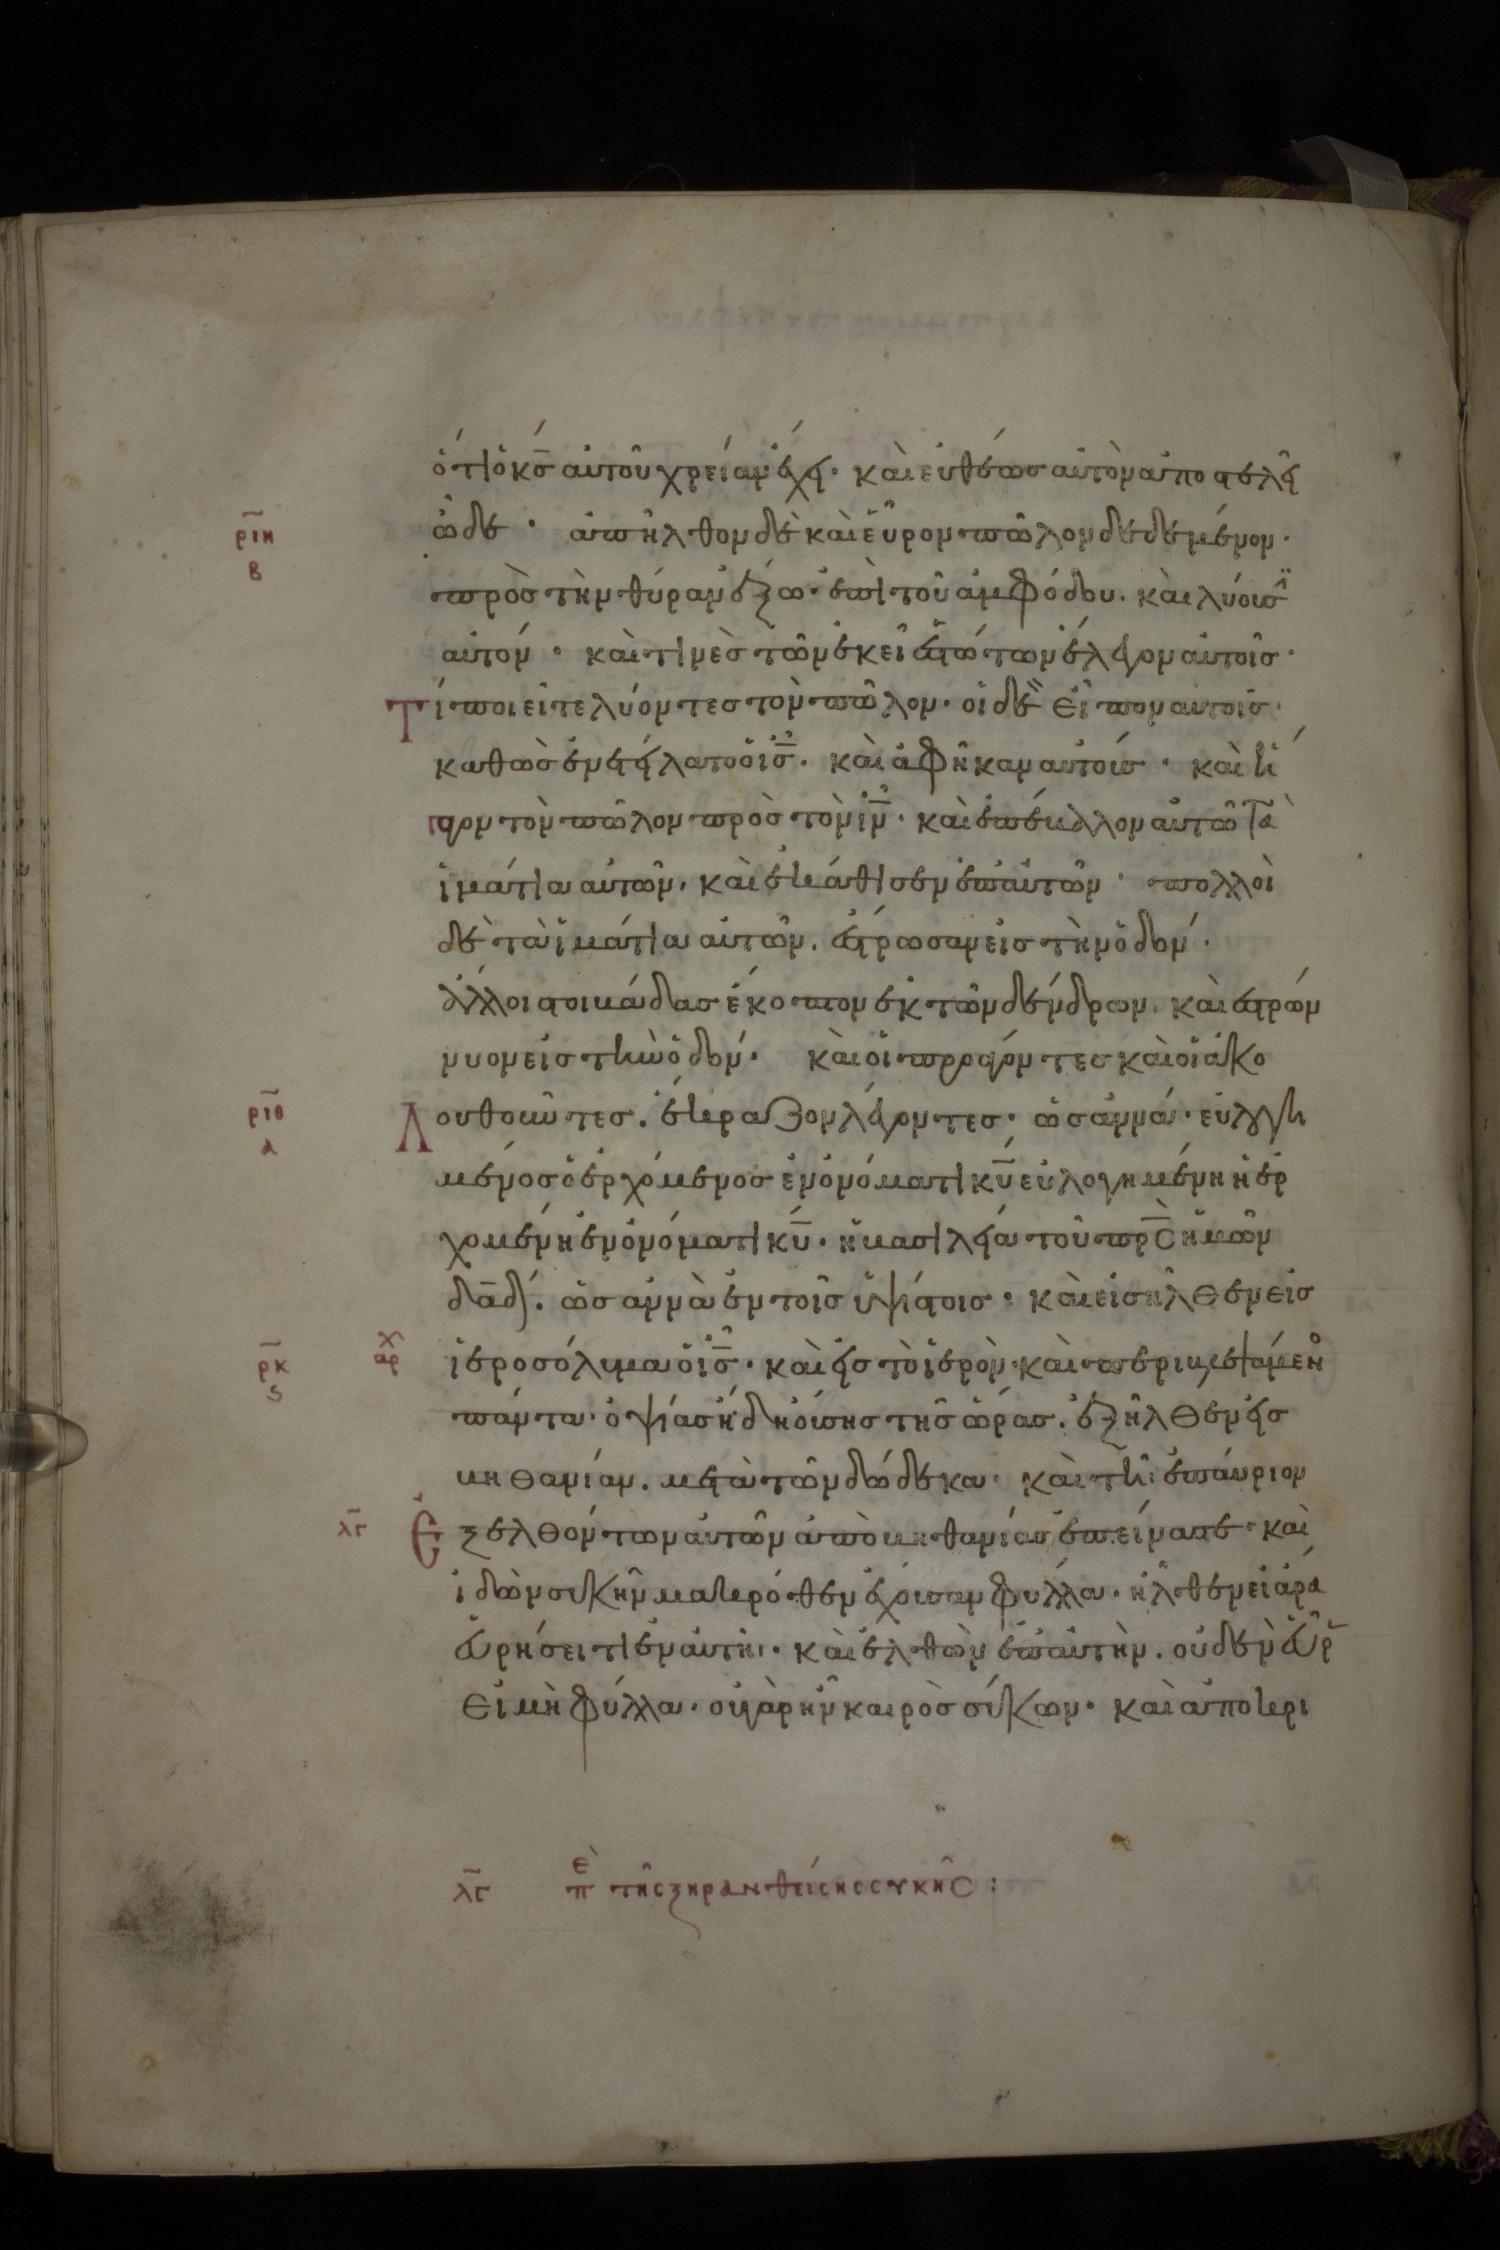 ὅτι ὁ κ̅ς̅ αὐτοῦ χρείαν ἔχει· καὶ εὐθέως αὐτὸν ἀποστελεῖ
ρ̅ι̅η̅ ὧδε· ἀπῆλθον δὲ καὶ εὗρον πῶλον δεδεμένον·
β
πρὸς τὴν θύραν ἔξω· ἐπὶ τοῦ ἀμφόδου. καὶ λύουσιν
αὐτόν· καὶ τινὲς τῶν ἐκεῖ ἑστώτων ἔλεγον αὐτοῖς·
Τί ποιεῖτε λύοντες τὸν πῶλον· οἱ δὲ εἶπον αὐτοῖς·
καθὼς ἐνετείλατο ὁ ι̅ς̅. καὶ ἀφῆκαν αὐτούς· καὶ ἤ
γαγον τὸν πῶλον πρὸς τὸν ι̅ν̅· καὶ ἐπέβαλλον αὐτῶ τὰ
ἱμάτια αὐτῶν, καὶ ἐκάθισεν ἐπ' αὐτῶν· πολλοὶ
δὲ τὰ ἱμάτια αὐτῶν. ἔστρωσαν εἰς τὴν ὁδόν·
ἄλλοι στοιβάδας ἔκοπτον ἐκ τῶν δένδρων. καὶ ἐστρών
νυον εἰς τὴν ὁδόν· καὶ οἱ προάγοντες καὶ οἱ ἀκο
ρ̅ι̅θ̅ λουθοῦντες. ἔκραζον λέγοντες· ὡσαννά· εὐλογη
α
μένος ὁ ἐρχόμενος ἐν ὀνόματι κ̅υ̅ εὐλογημένη ἡ ἐρ
χομένη ἐν ὀνόματι κ̅υ̅· ἡ βασιλεία τοῦ π̅ρ̅ς̅ ἡμῶν
δ̅α̅δ̅. ὡσαννὰ ἐν τοῖς ὑψίστοις· καὶ εἰσῆλθεν εἰς
ρ̅κ̅ αρχ ἱεροσόλυμα ὁ ι̅ς̅· καὶ εἰς τὸ ἱερὸν· καὶ περιβλεψάμενος
ς
πάντα· ὀψίας ἤδη οὔσης τῆς ὥρας. ἐξῆλθεν εἰς
βηθανίαν. μετὰ τῶν δώδεκα· καὶ τῆ ἐπαύριον
λ̅γ̅ Ἐξελθόντων αὐτῶν ἀπὸ βηθανίας ἐπείνασε· καὶ
ἰδὼν συκῆν μακρόθεν ἔχουσαν φύλλα· ἦλθεν εἰ ἄρα
εὑρήσει τι ἐν αὐτῆ· καὶ ἐλθὼν ἐπ' αὐτὴν. οὐδὲν εὗρεν
εἰ μὴ φύλλα· οὐ γὰρ ἦν καιρὸς σύκων· καὶ ἀποκρι
λ̅γ̅ πε τῆς ξηρανθείσης συκῆς: